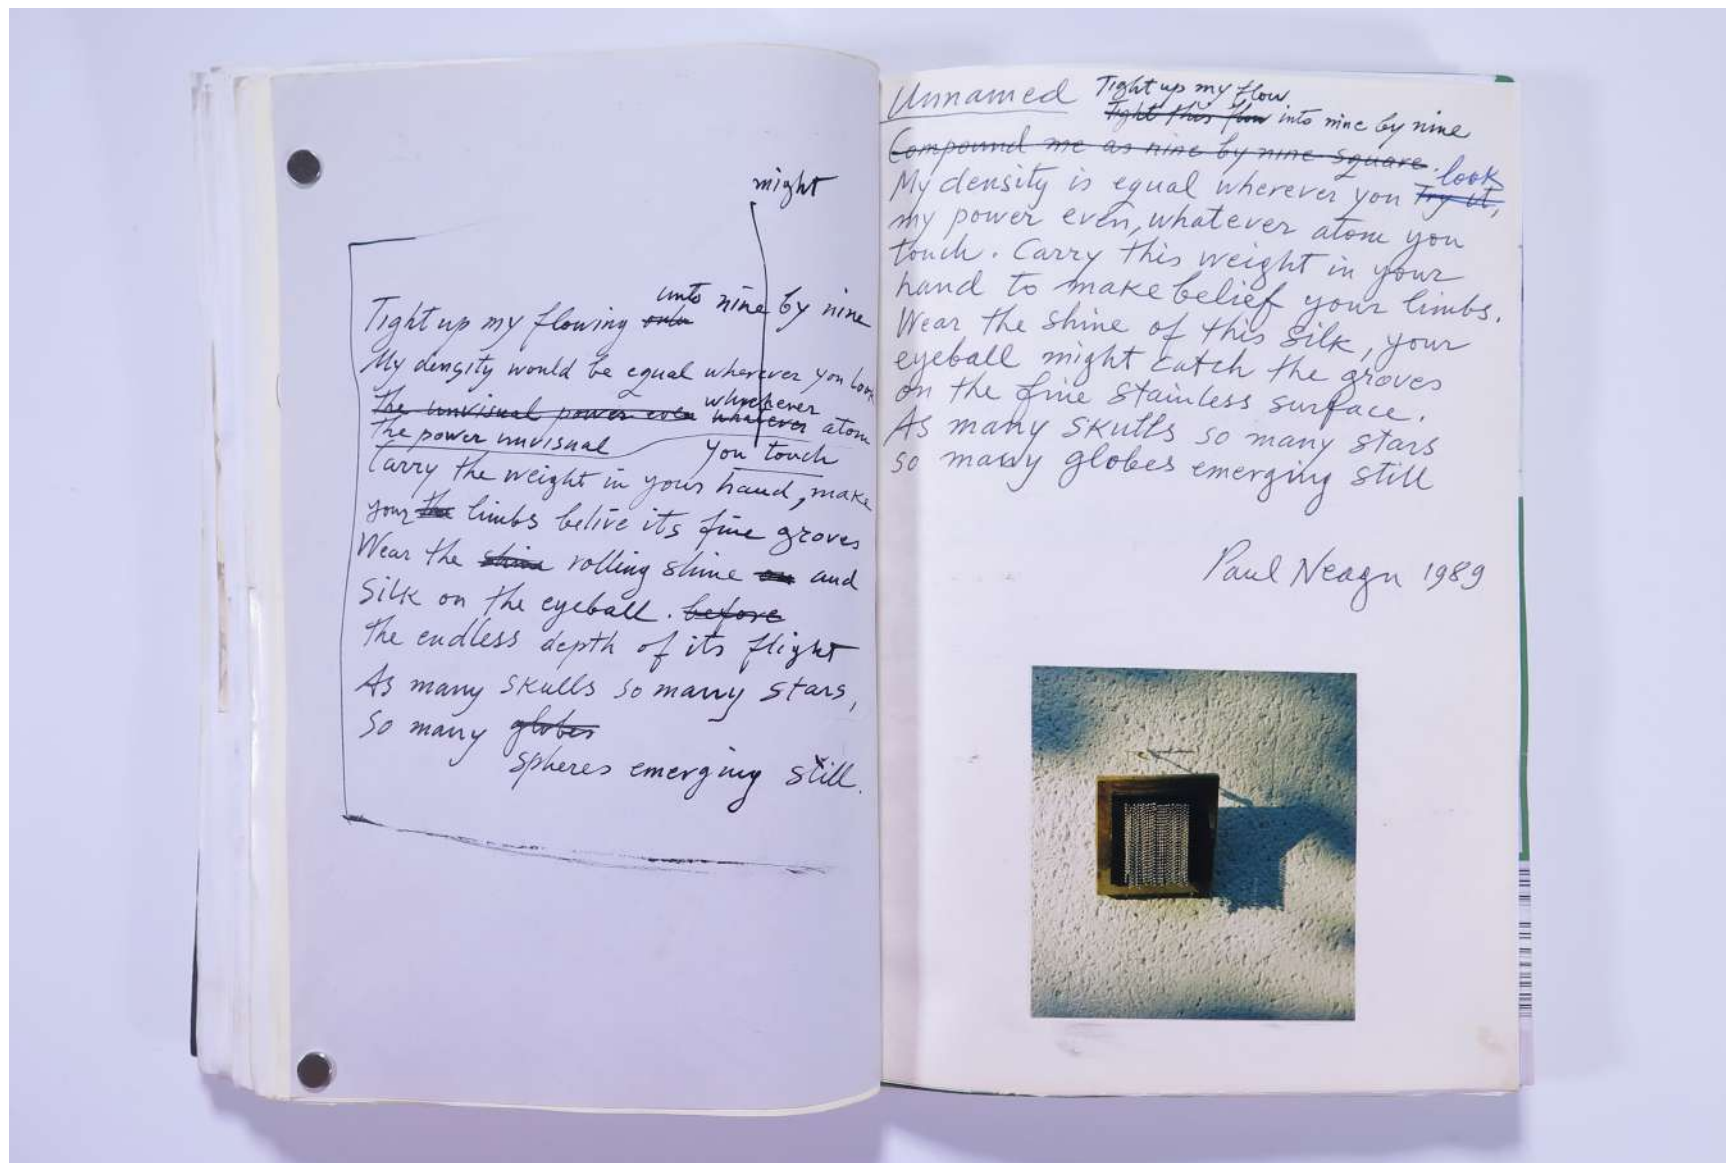 might
unto nine by nine
Tight up my flowing onto
My density would be equal wherever you look
whichever
the unvisual power even whatever atom
the power unvisual
you touch
Carry the weight in your hand, make
your the limbs belive its fine groves
Wear the shine rolling shine on and
Silk on the eyeball. before
the endless depth of its flight
As many skulls so many stars,
so many globes
spheres emerging still.
Unnamed
Tight up my flow
Tight this flow into nine by nine
Compound me as nine by nine square.
look
My density is equal wherever you try it,
my power even, whatever atom you
touch. Carry this weight in your
hand to make belief your limbs.
Wear the shine of this silk, your
eyeball might catch the groves
on the fine stainless surface.
As many skulls so many stars
so many globes emerging still
Paul Neagu 1989